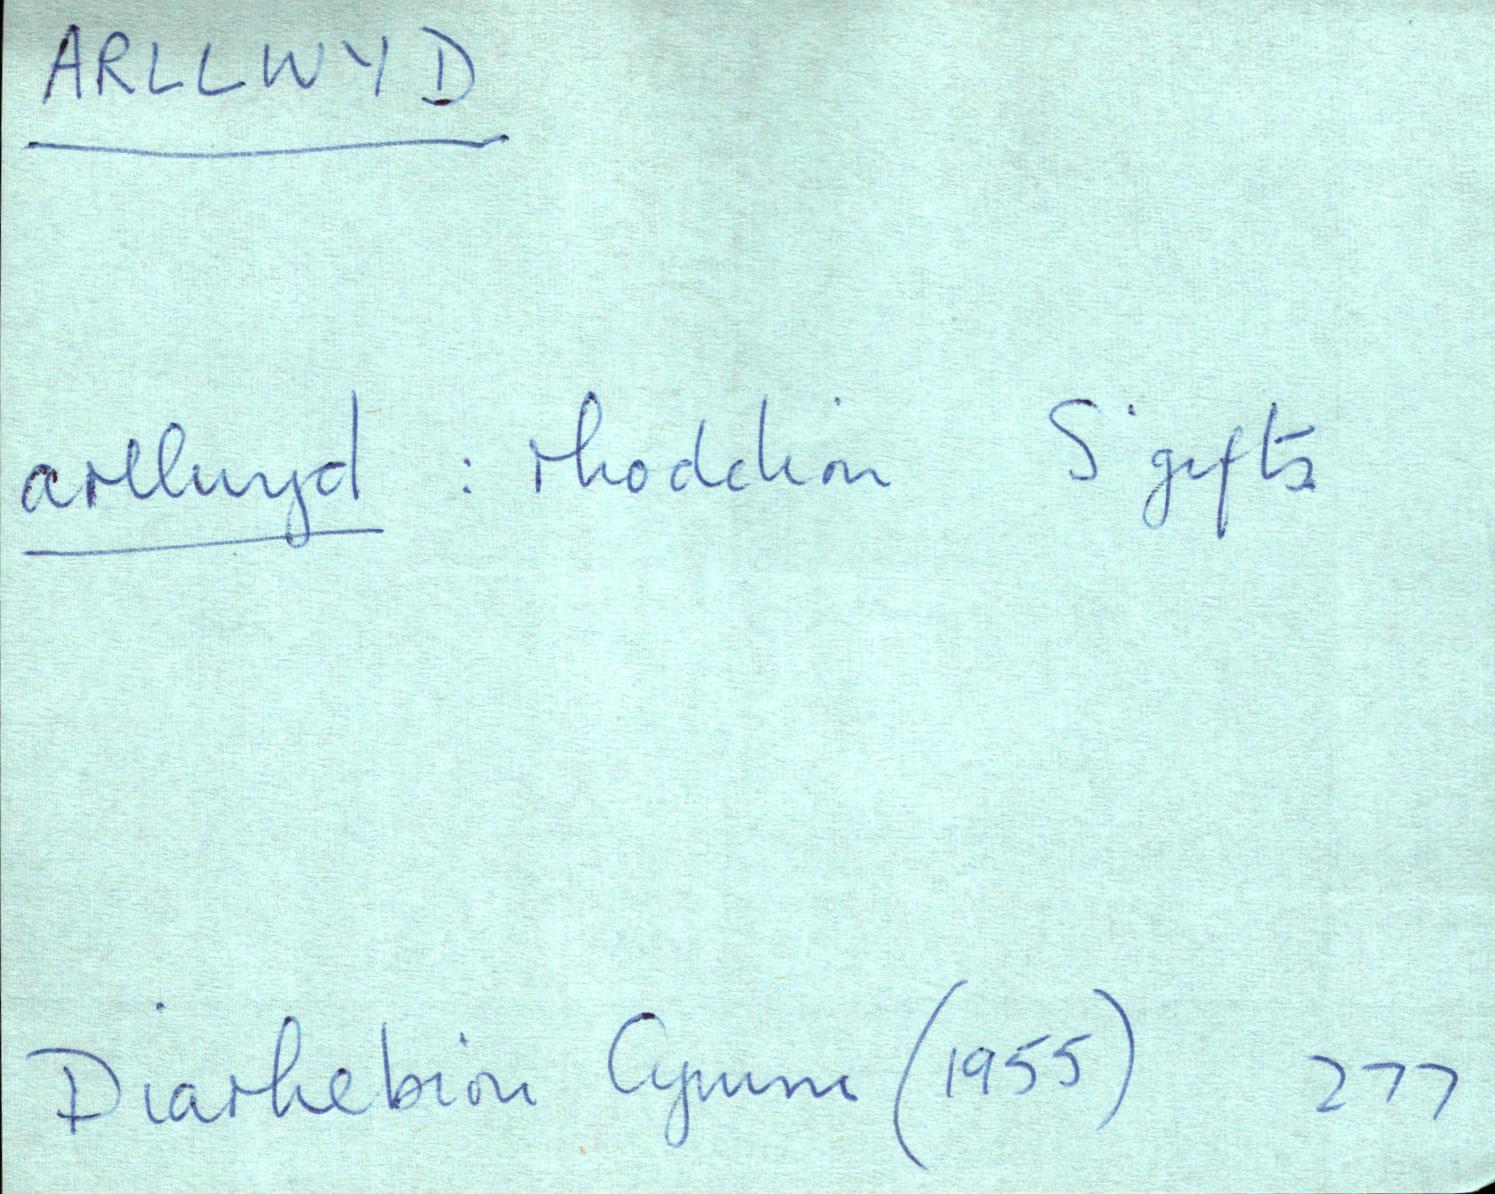 ARLLWYD
arllwyd : rhoddion S' gifts
Diarhebion Cymru (1955) 277